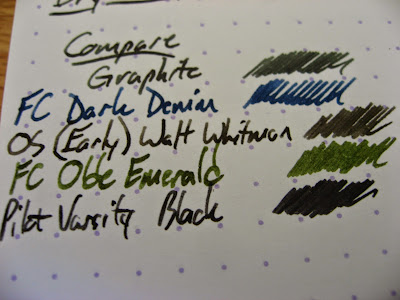 Compare
Graphite
FC Dark Denim
OS (Early) Walt Whitman
FC Olde Emerald
Pilot Varsity Black